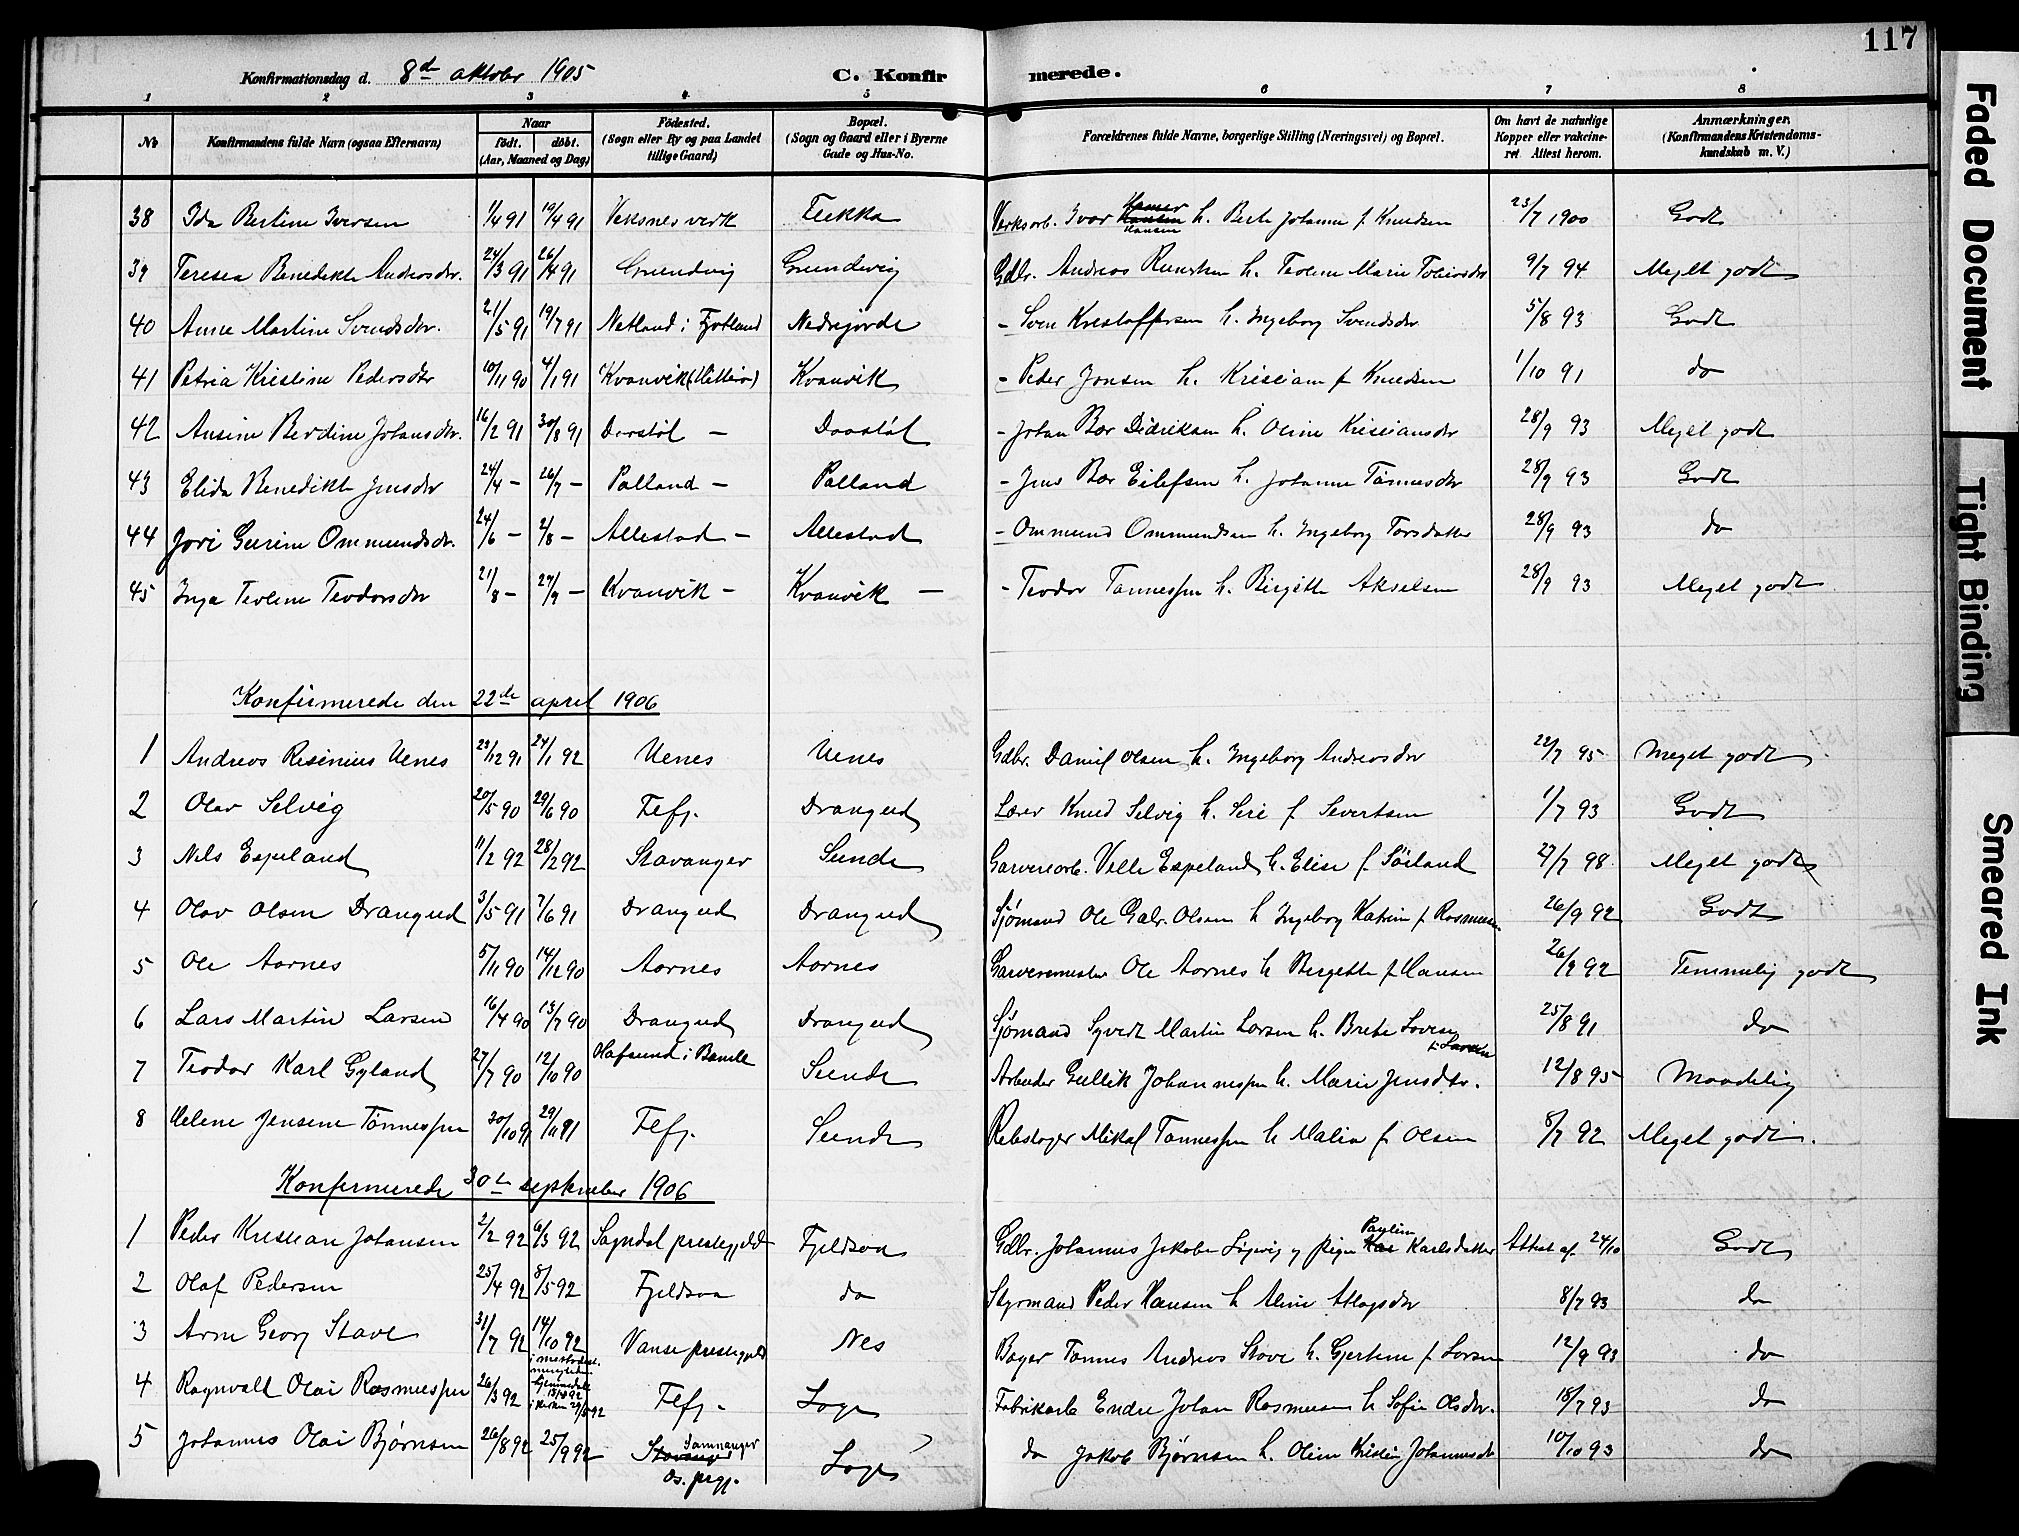 117
Konfirmationsdag d. 8de oktober 1905 C. Konfirmerede.
1 2 3 4 5 6 7 8
No Konfirmandens fulde Navn (ogsaa Efternavn) Naar født. døbt. (Aar, Maaned og Dag) Fødested. (Sogn eller By og paa Landet tillige Gaard) Bopæl. (Sogn og Gaard eller i Byerne Gade og Hus-No. Forældrenes fulde Navne, borgerlige Stilling (Næringsvei) og Bopæl. Om havt de naturlige Kopper eller vakcineret. Attest herom. Anmærkninger. (Konfirmandens Kristendomskundskab m. V.)
38 Ida Bertine Iversen 1/4 91 19/4 91 verk Fukka Verksarb. Ivar Hansen h. Berte Johanne f. Knudsen 23/7 1900 Godt
39 Teresea Benedikte Andreasdtr. 24/3 91 26/4 91 Grundvig Grundevig Gdbr. Andreas h. Teoline Marie Tobiasdtr 9/7 94 Meget godt
40 Anne Martine Svendsdtr. 21/5 91 19/7 91 Netland i Fjotland Nedrejorde - Sven Kristoffersen h. Ingeborg Svendsdtr 5/8 93 Godt
41 Petria Kristine Pedersdtr 10/11 90 4/1 91 Kvanvik (Hitterø) Kvanvik - Peder Jonsen h. Kristiane f. Knudsen 1/10 91 do
42 Ansine Berdine Johansdtr. 16/2 91 30/8 91 Dorstøl - Daastøl - Johan Bær Didriksen h. Oline Kristiansdtr 28/9 93 Meget godt
43 Elida Benedikte Jensdtr 24/4 - 26/7 - Polland - Polland - Jens Bær Eilefsen h. Johanne Tønnesdtr 28/9 93 Godt
44 Jori Gurine Ommundsdtr. 24/6 - 2/8 - Allestad - Allestad - Ommund Ommundsen h. Ingeborg Torsdatter 28/9 93 do
45 Inga Teoline Teodorsdtr 21/8 - 27/9 - Kvanvik - Kvanvik - - Teodor Tønnessen h. Birgitte Akselsen 28/9 93 Meget godt
Konfirmerede den 22de april 1906
1 Andreas Resinius Uenes 23/12 91 24/1 92 Uenes Uenes Gdbr. Daniel Olsen h. Ingeborg Andreasdtr 22/7 95 Meget godt
2 Olav Selvig 20/5 90 29/6 90 Flefj. Drangeid Lærer Knud Selvig h. Siri f. Severtsen 1/7 93 Godt
3 Nils Espeland 11/2 92 28/2 92 Stavanger Sunde Garveriarb. Ville Espeland h. Elise f. Søiland 27/7 98 Meget godt
4 Olav Olsen Drangeid 3/5 91 7/6 91 Drangeid Drangeid Sjømand Ole Gabr. Olsen h Ingeborg Katrine f. Rasmussen 26/9 92 Godt
5 Ole Aarnes 5/11 90 14/12 90 Aarnes Aarnes Garvermester Ole Aarnes h Birgitte f Hansen 26/9 92 Temmelig godt
6 Lars Martin Larsen 16/4 90 13/7 90 Drangeid Drangeid Sjømand Syvert Martin Larsen h. Berte Lovise f. Larsen 25/8 91 do
7 Teodor Karl Gyland 27/7 90 12/10 90 Olafsund i Bamble Sunde Arbeider Gullik Johannessen h. Marie Jensdtr. 12/8 95 Maadelig
8 Helene Jensine Tønnessen 30/10 91 29/11 91 Flefj. Sunde Rebslager Mikal Tønnessen h Malia f Olsen 8/7 92 Meget godt.
Konfirmerede 30te september 1906
1 Peder Kristian Johansen 2/2 92 6/3 92 Sogndal prestegjeld Fjeldsaa Gdbr. Johannes Jakobsen og pigen Pauline Karlsdatter Attest af 24/10 Godt
2 Olaf Pedersen 25/4 92 8/5 92 Fjeldsaa do Styrmand Peder Hansen h Aline Atlagsdtr 8/7 93 do
3 Arne Georg Stave 31/7 92 14/10 92 i metodistmenigheden Vanse prestegjeld Nes Bager Tønnes Andreas Stave h. Gjertine f. Larsen 12/9 93 do
4 Ragnvald Olai Rasmussen 26/3 92 hjemmedøbt 13/3 92 i kirken 29/5 92 Flefj. Loga Fabrikarb Endre Johan Rasmussen h Sofie Olsdtr. 18/7 93 do
5 Johannes Olai Bjørnsen 26/8 92 25/9 92 Samnanger Os. prgj. Loga do Jakob Bjørnsen h. Oline Kristine Johannesdtr 10/10 93 do
Faded Document
Tight Binding
Smeared Ink